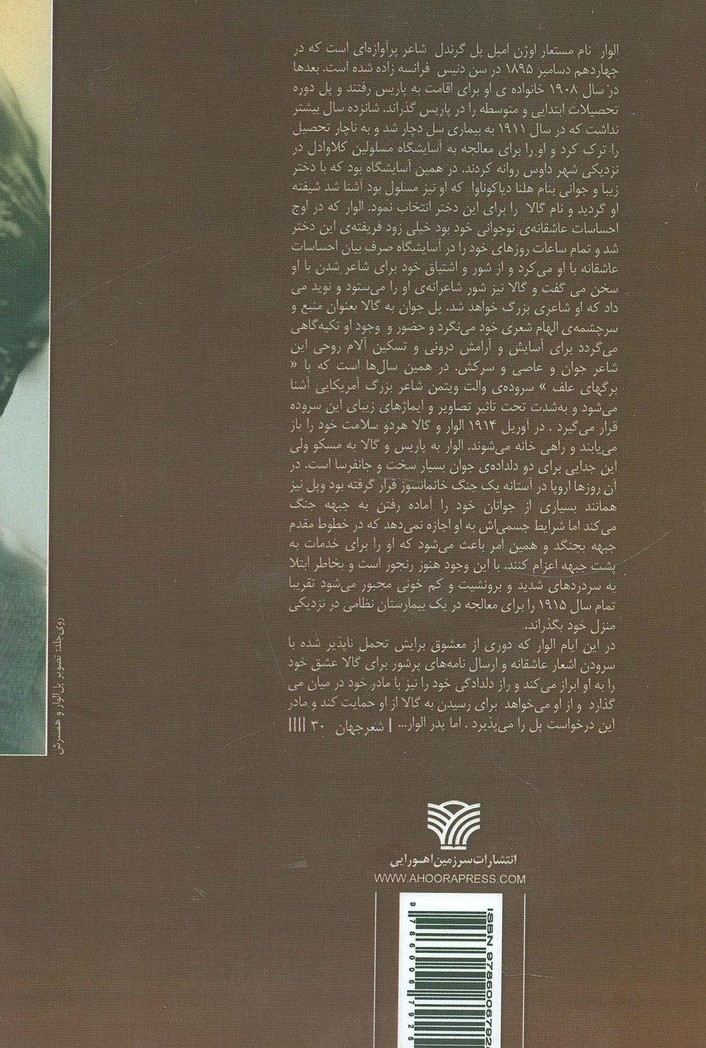 الوار نام مستعار اوژن امیل پل گرندل شاعر پرآوازه‌ای است که در
چهاردهم دسامبر ۱۸۹۵ در سن دنیس فرانسه زاده شده است. بعدها
در سال ۱۹۰۸ خانواده ی او برای اقامت به پاریس رفتند و پل دوره
تحصیلات ابتدایی و متوسطه را در پاریس گذراند. شانزده سال بیشتر
نداشت که در سال ۱۹۱۱ به بیماری سل دچار شد و به ناچار تحصیل
را ترک کرد و او را برای معالجه به آسایشگاه مسلولین کلاوادل در
نزدیکی شهر داوس روانه کردند. در همین آسایشگاه بود که با دختر
زیبا و جوانی بنام هلنا دیاکوناوا که او نیز مسلول بود آشنا شد شیفته
او گردید و نام گالا را برای این دختر انتخاب نمود. الوار که در اوج
احساسات عاشقانه‌ی نوجوانی خود بود خیلی زود فریفته‌ی این دختر
شد و تمام ساعات روزهای خود را در آسایشگاه صرف بیان احساسات
عاشقانه با او می‌کرد و از شور و اشتیاق خود برای شاعر شدن با او
سخن می گفت و گالا نیز شور شاعرانه‌ی او را می‌ستود و نوید می
داد که او شاعری بزرگ خواهد شد. پل جوان به گالا بعنوان منبع و
سرچشمه‌ی الهام شعری خود می‌نگرد و حضور و وجود او تکیه‌گاهی
می‌گردد برای آسایش و آرامش درونی و تسکین آلام روحی این
شاعر جوان و عاصی و سرکش. در همین سال‌ها است که با «
برگهای علف » سروده‌ی والت ویتمن شاعر بزرگ آمریکایی آشنا
می‌شود و به‌شدت تحت تاثیر تصاویر و ایماژهای زیبای این سروده
قرار می‌گیرد . در آوریل ۱۹۱۴ الوار و گالا هردو سلامت خود را باز
می‌یابند و راهی خانه می‌شوند. الوار به پاریس و گالا به مسکو ولی
این جدایی برای دو دلداده‌ی جوان بسیار سخت و جانفرسا است. در
آن روزها اروپا در آستانه یک جنگ خانمانسوز قرار گرفته بود وپل نیز
همانند بسیاری از جوانان خود را آماده رفتن به جبهه جنگ
می‌کند اما شرایط جسمی‌اش به او اجازه نمی‌دهد که در خطوط مقدم
جبهه بجنگد و همین امر باعث می‌شود که او را برای خدمات به
پشت جبهه اعزام کنند. با این وجود هنوز رنجور است و بخاطر ابتلا
به سردردهای شدید و برونشیت و کم خونی مجبور می‌شود تقریبا
تمام سال ۱۹۱۵ را برای معالجه در یک بیمارستان نظامی در نزدیکی
منزل خود بگذراند.
در این ایام الوار که دوری از معشوق برایش تحمل ناپذیر شده با
سرودن اشعار عاشقانه و ارسال نامه‌های پرشور برای گالا عشق خود
را به او ابراز می‌کند و راز دلدادگی خود را نیز با مادر خود در میان می
گذارد و از او می‌خواهد برای رسیدن به گالا از او حمایت کند و مادر
این درخواست پل را می‌پذیرد . اما پدر الوار... | شعرجهان ۳۰ ||||
روی جلد: تصویر پل الوار و همسرش
انتشارات سرزمین اهورایی
WWW.AHOORAPRESS.COM
ISBN 978600679২
9 786006 7925